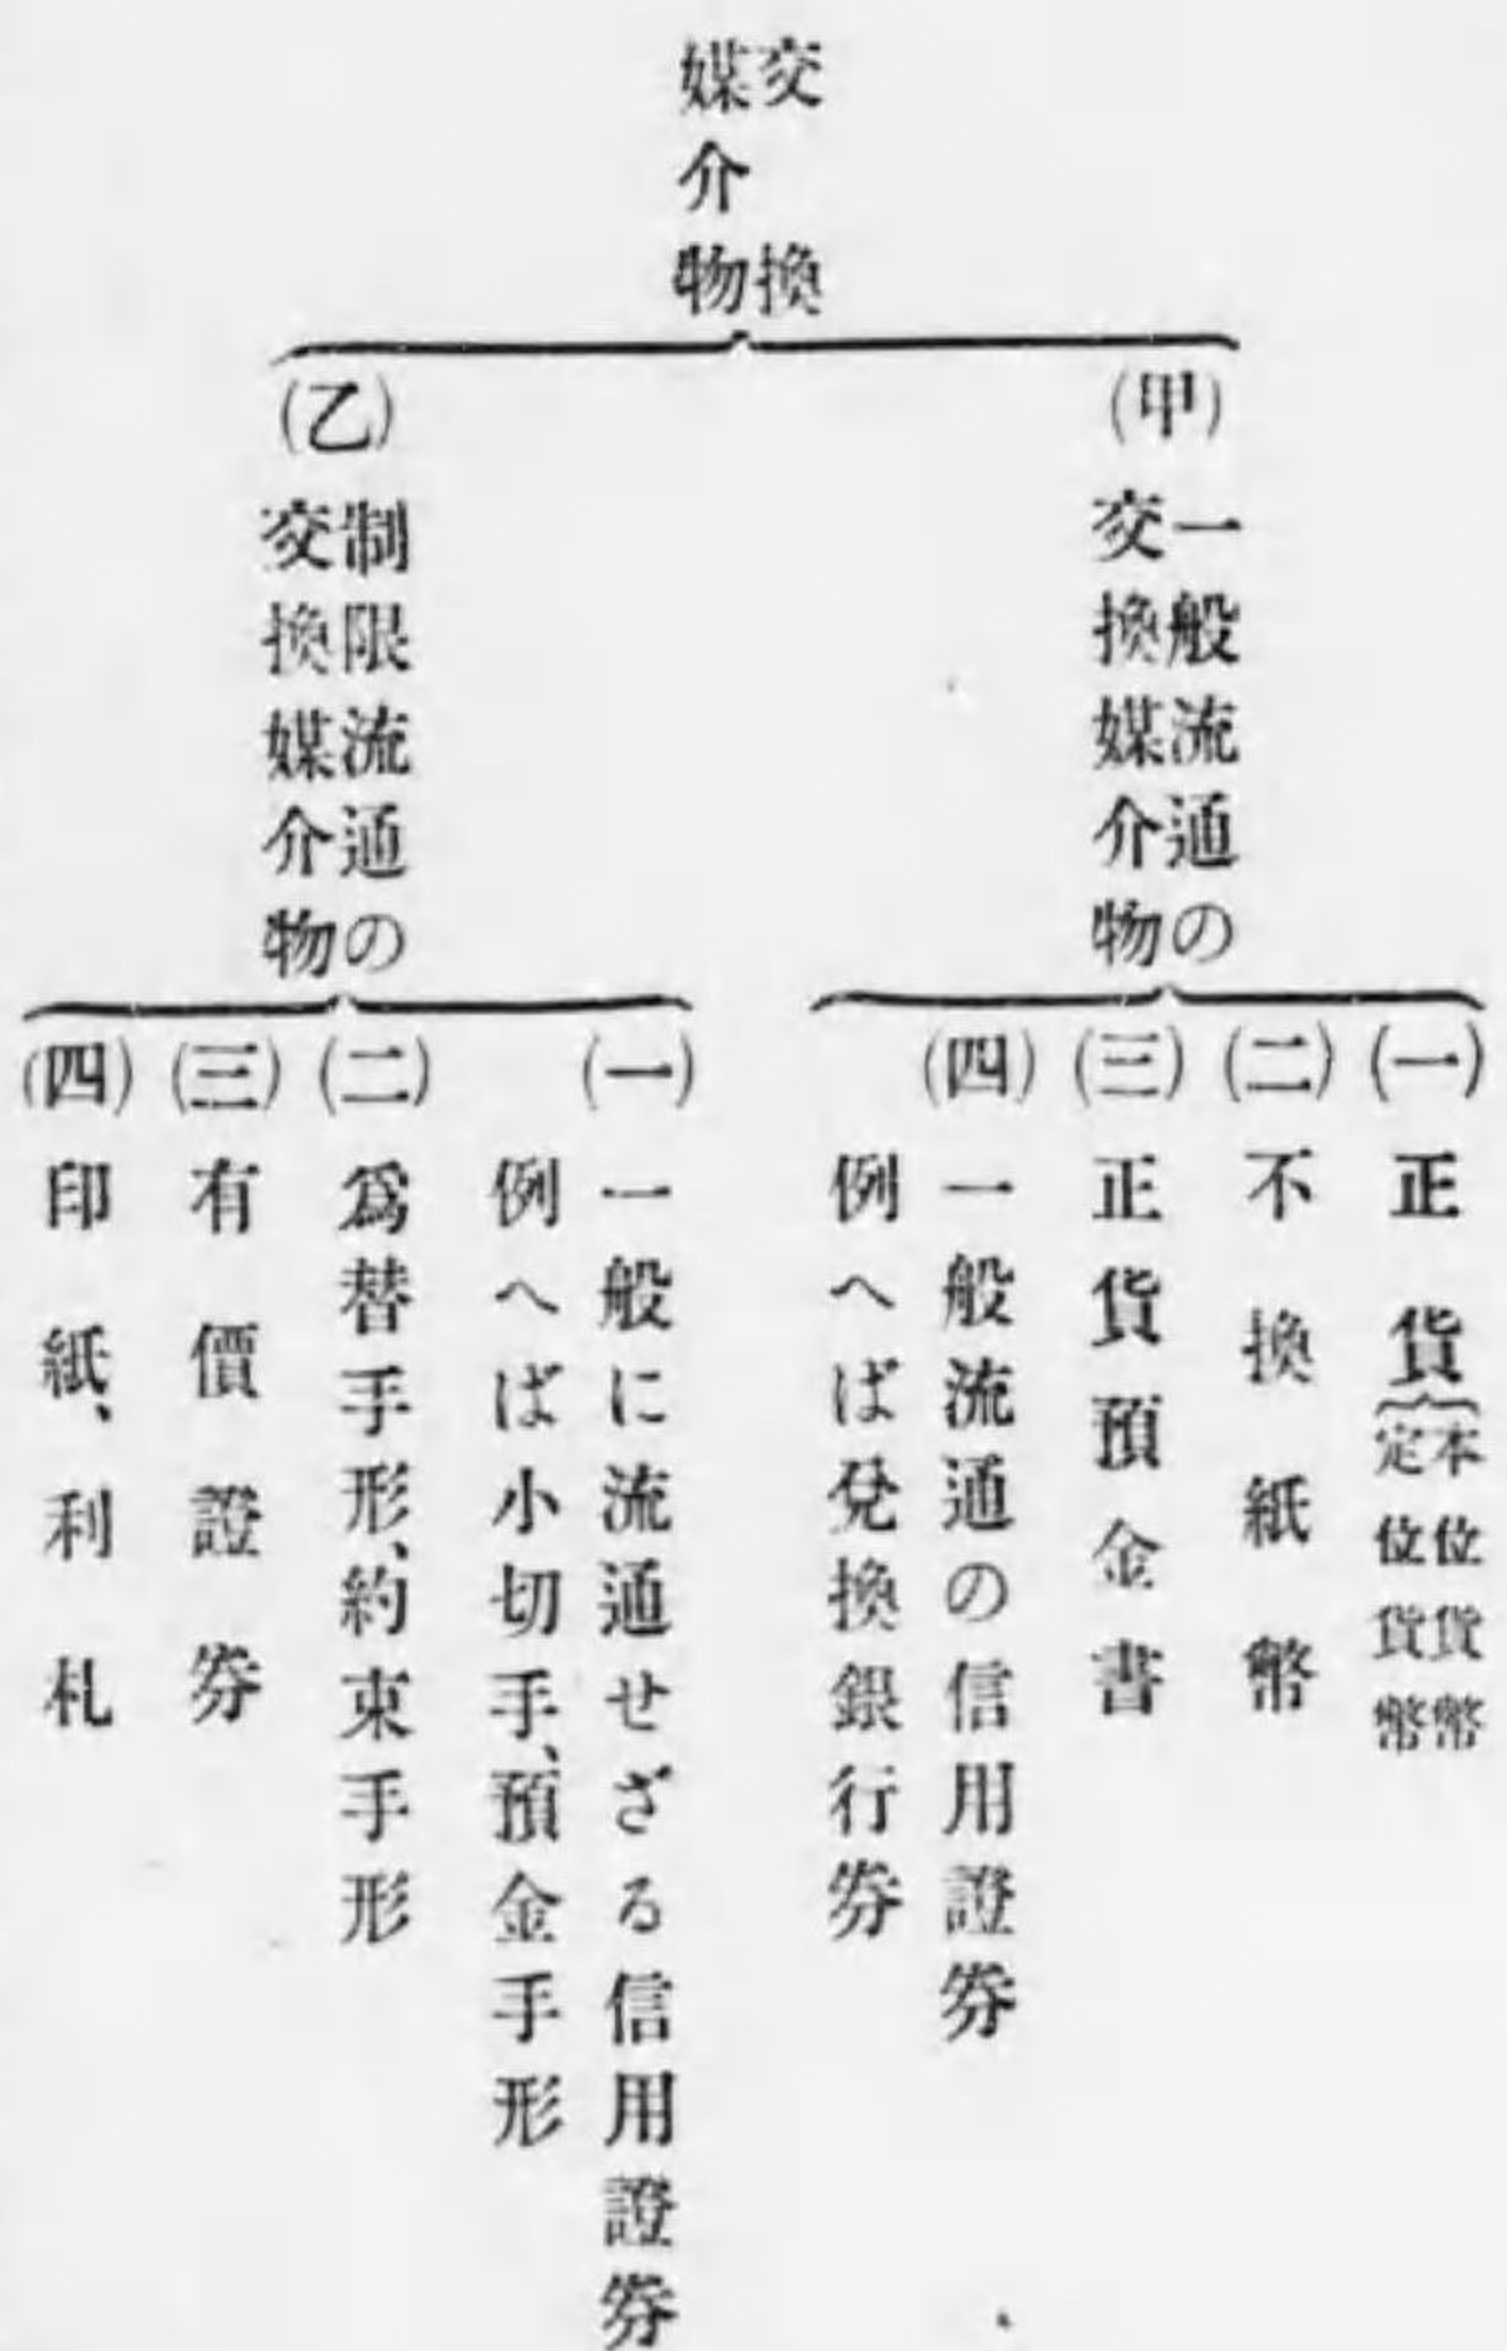 交換
媒介物
(甲)
一般流通の
交換媒介物
(一)
正貨
本位貨幣
定位貨幣
(二)
不換紙幣
(三)
正貨預金書
(四)
一般流通の信用證券
例へば兌換銀行券
(乙)
制限流通の
交換媒介物
(一)
一般に流通せざる信用證券
例へば小切手、預金手形
(二)
爲替手形、約束手形
(三)
有價證券
(四)
印紙、利札